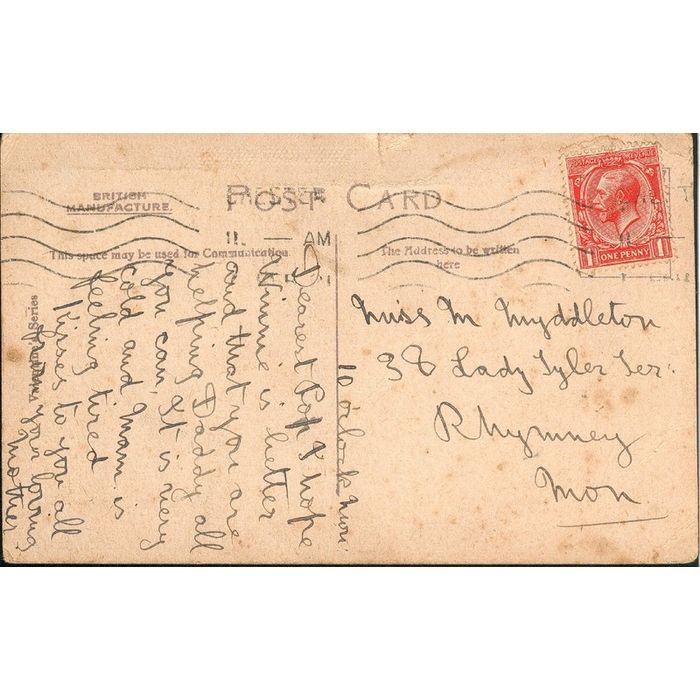 BRITISH
MANUFACTURE.
POST CARD
11 — AM
This space may be used for Communication
The Address to be written
here
Series
POSTAGE REVENUE
1 ONE PENNY 1
Miss M Myddleton
38 Lady Tyler Ter:
Rhymney
Mon
10 o'clock
Dearest Poppy I hope
Winnie is better
and that you are
helping Daddy all
you can, It is very
cold and Mam is
feeling tired
Kisses to you all
from your loving
Mother